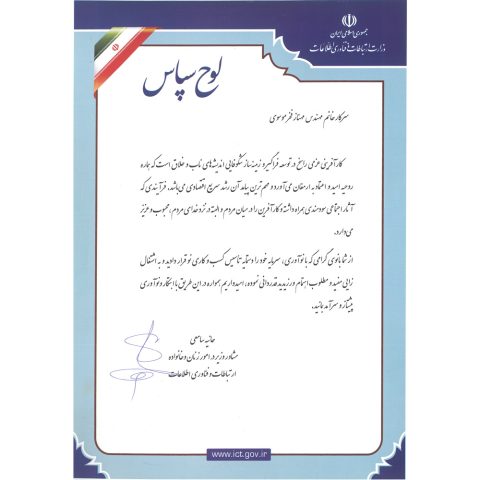 جمهوری اسلامی ایران
وزارت ارتباطات و فناوری اطلاعات
لوح سپاس
سرکار خانم مهندس مهناز فخر موسوی
کارآفرینی عزمی راسخ در توسعه فراگیر و زمینه ساز شکوفایی اندیشه‌های ناب و خلاق است که همواره
روحیه امید و اعتماد به ارمغان می‌آورد و مهم ترین پیامد آن رشد سریع اقتصادی می‌باشد. فرآیندی که
آثار اجتماعی سودمندی به همراه داشته و کارآفرین را در میان مردم و البته در نزد خدای مردم، محبوب و عزیز
می‌دارد.
از شما بانوی گرامی که با نوآوری، سرمایه خود را دستمایه تاسیس کسب و کاری نو قرار دادید و به اشتغال
زایی مفید و مطلوب اهتمام ورزیدید قدردانی نموده، امیدواریم همواره در این طریق با ابتکار و نوآوری
پیشتاز و سرآمد بمانید.
مشاور وزیر در امور زنان و خانواده
ارتباطات و فناوری اطلاعات
www.ict.gov.ir